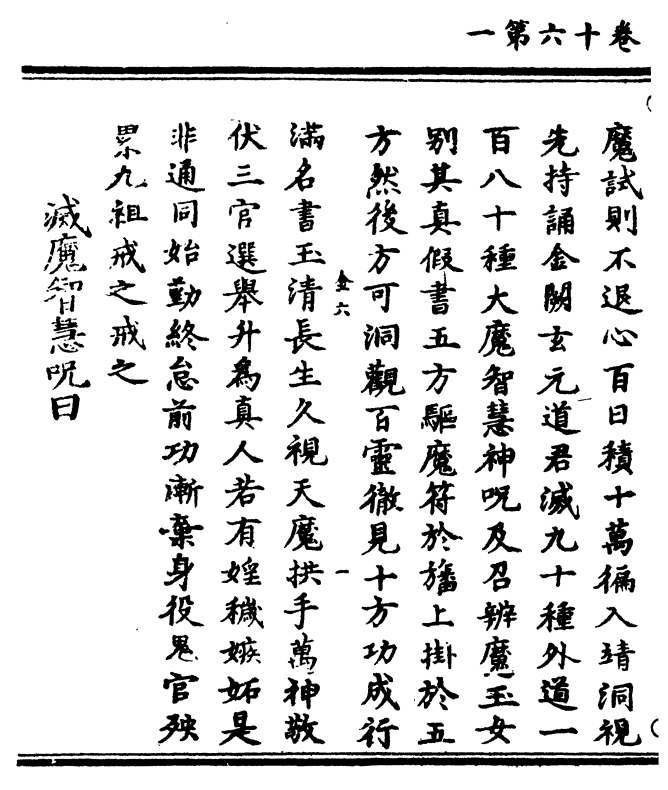 卷十六第一
魔試則不退心百日積十萬徧入靖洞視
先持誦金闕玄元道君滅九十種外道一
百八十種大魔智慧神呪及召辨魔玉女
别其真假書五方驅魔符於旛上掛於五
方然後方可洞觀百靈徹見十方功成行
金六 一
滿名書玉清長生久視天魔拱手萬神敬
伏三官選舉升爲真人若有婬穢嫉妬是
非通同始勤終怠前功漸棄身役鬼官殃
累九祖戒之戒之
滅魔智慧呪曰